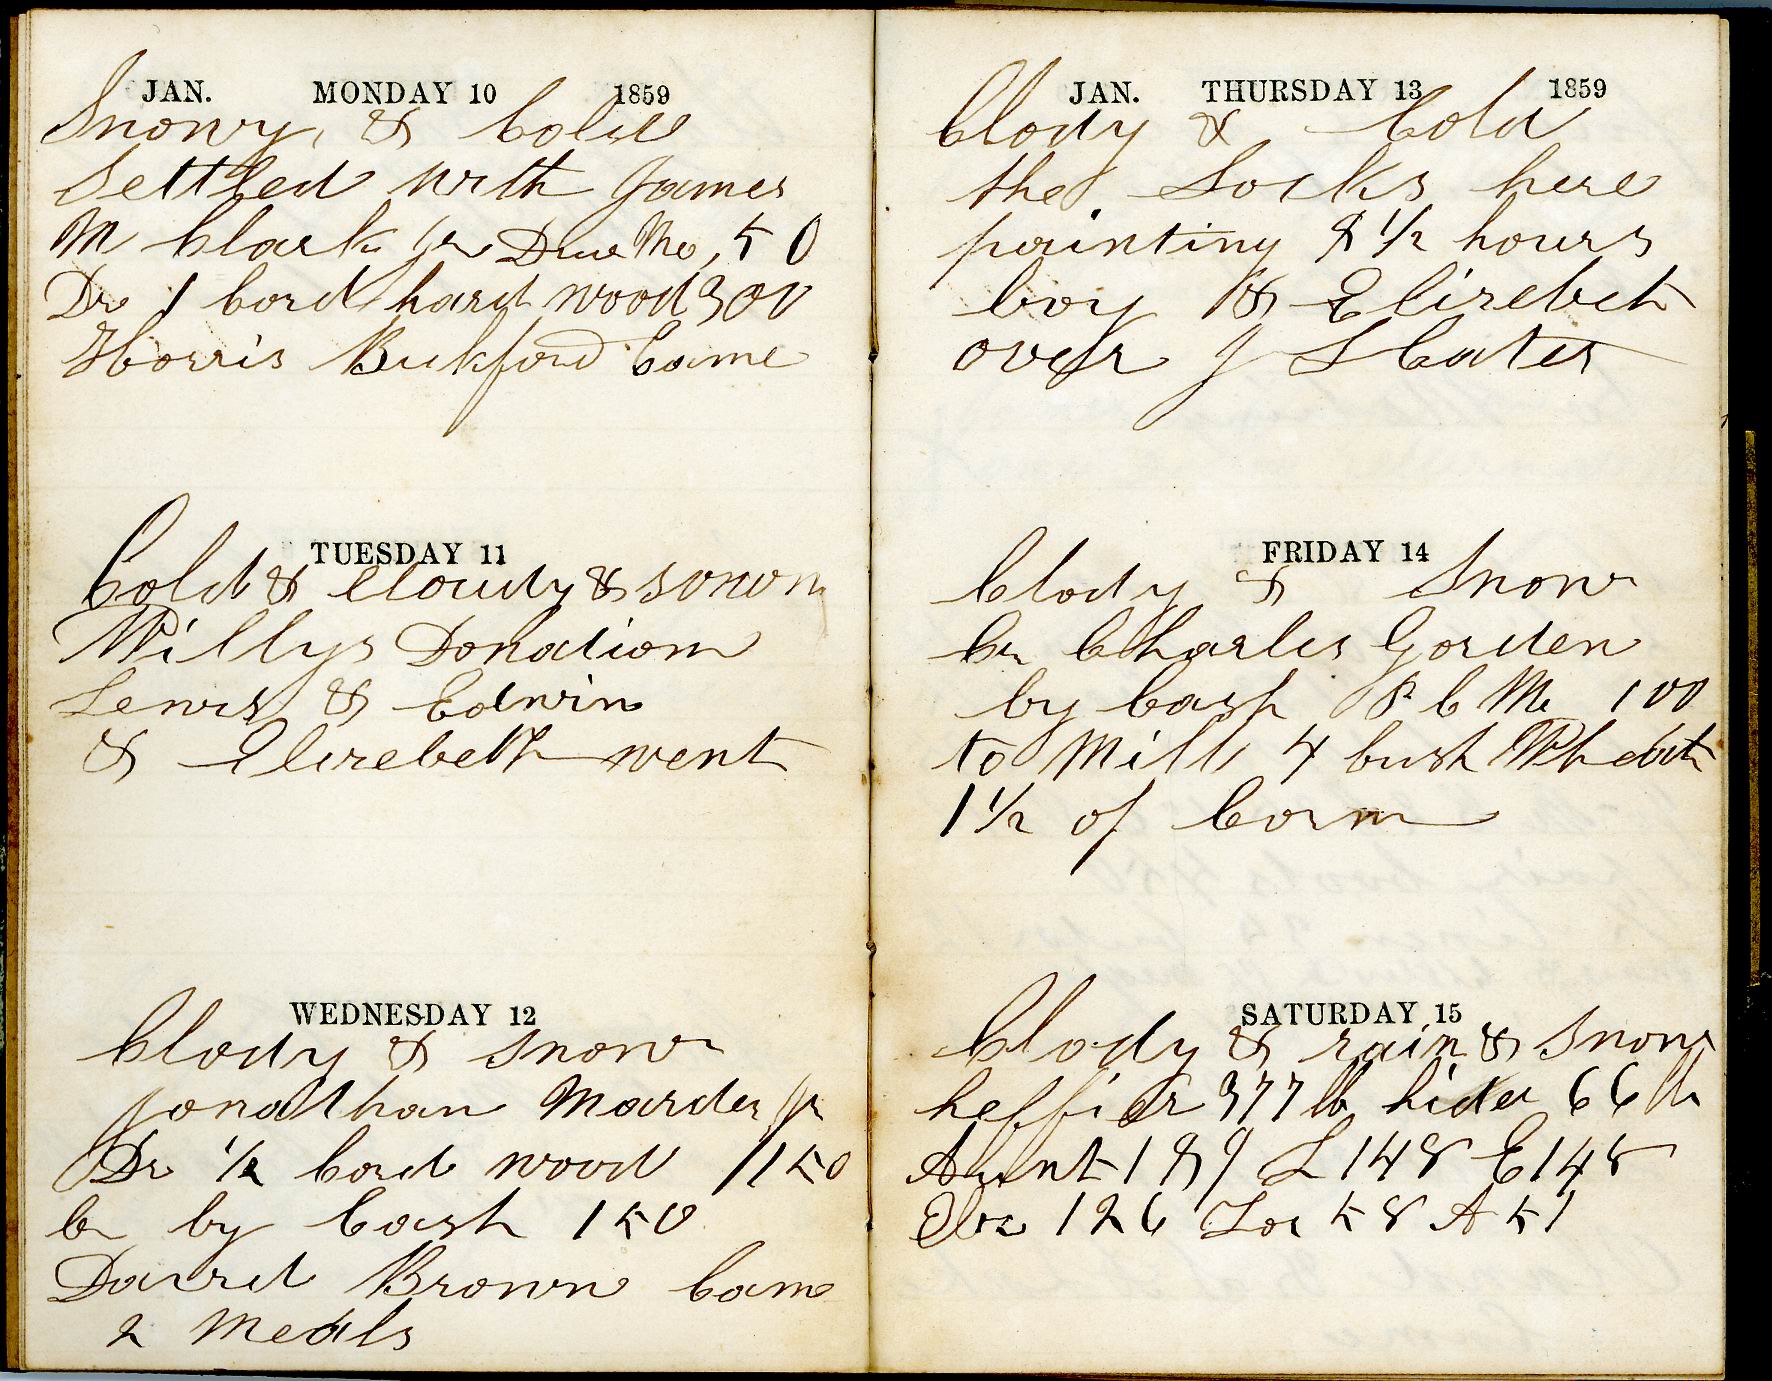 JAN. MONDAY 10 1859
Snowy, & Cold
Settled with James
M Clark Jr Due Me, 50
Dr 1 Cord hard wood 300
Horris Bickford Came
TUESDAY 11
Cold & Cloudy & snow
Willys Donation
Lewis & Edwin
& Elizebeth went
WEDNESDAY 12
Clody & Snow
Jonathan Marden Jr
Dr 1/2 Cord wood 150
Cr by Cash 150
David Brown Came
2 Meals
JAN. THURSDAY 13 1859
Clody & Cold
the Socks here
painting 8 1/2 hours
boy & Elizebeth
over J S Cates
FRIDAY 14
Clody & Snow
Cr Charles Gorden
by Cash 100
to Mill 4 bush
1 1/2 of Corn
SATURDAY 15
Clody & rain & Snow
heffier 377 lb hides 66 lb
Aunt 199 L 148 E 148
126 58 A 51